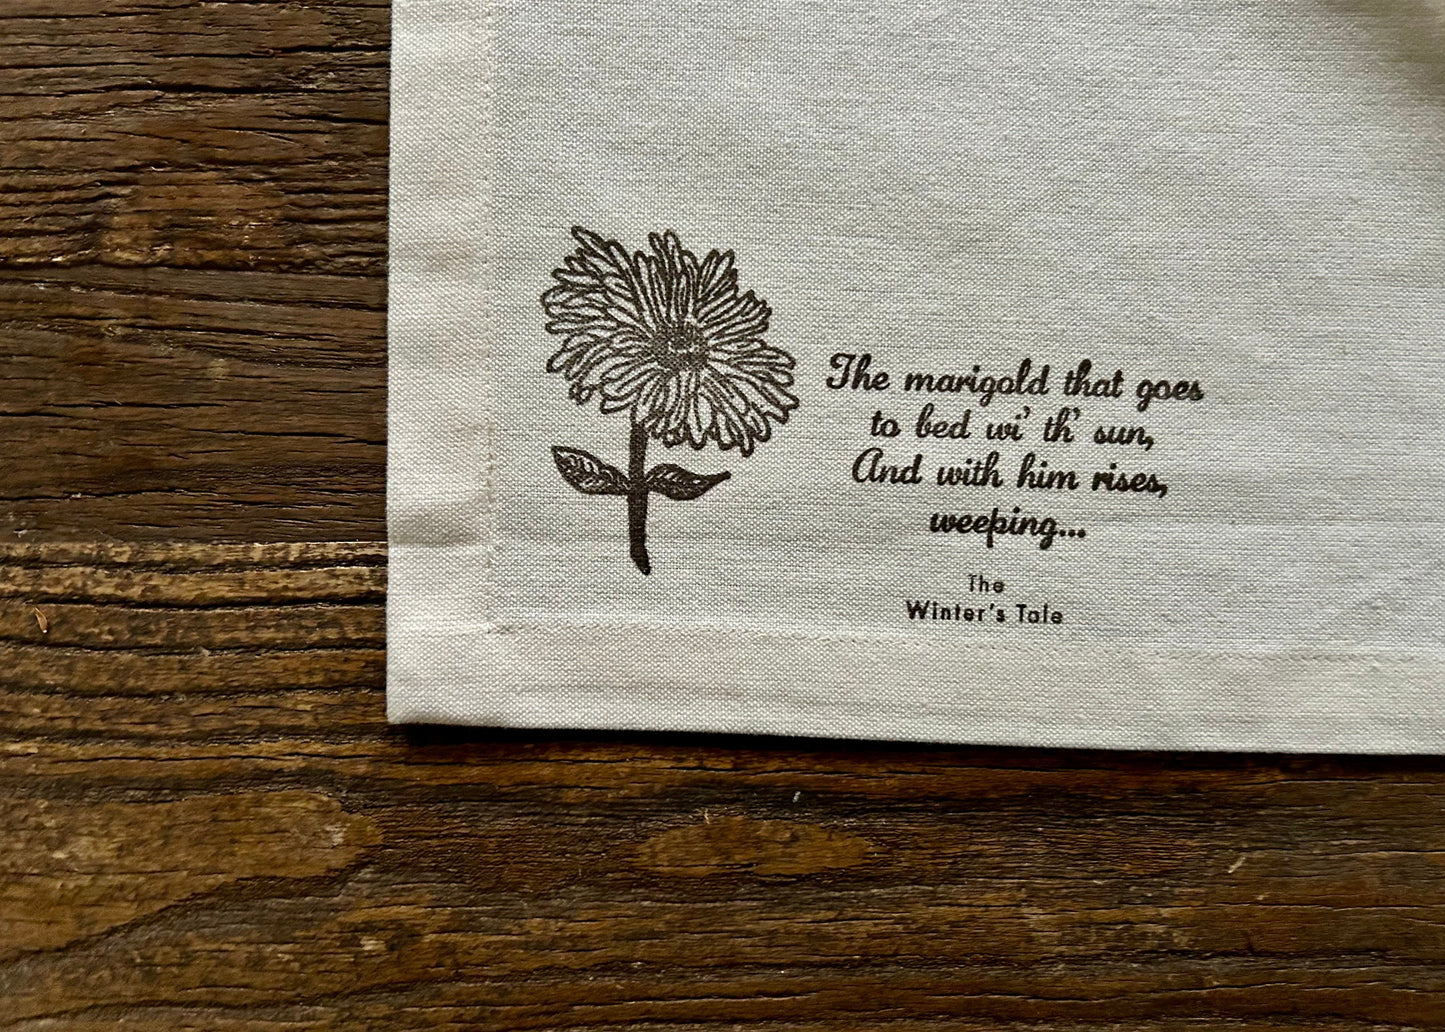 The marigold that goes
to bed wi' th' sun,
And with him rises,
weeping...
The
Winter's Tale